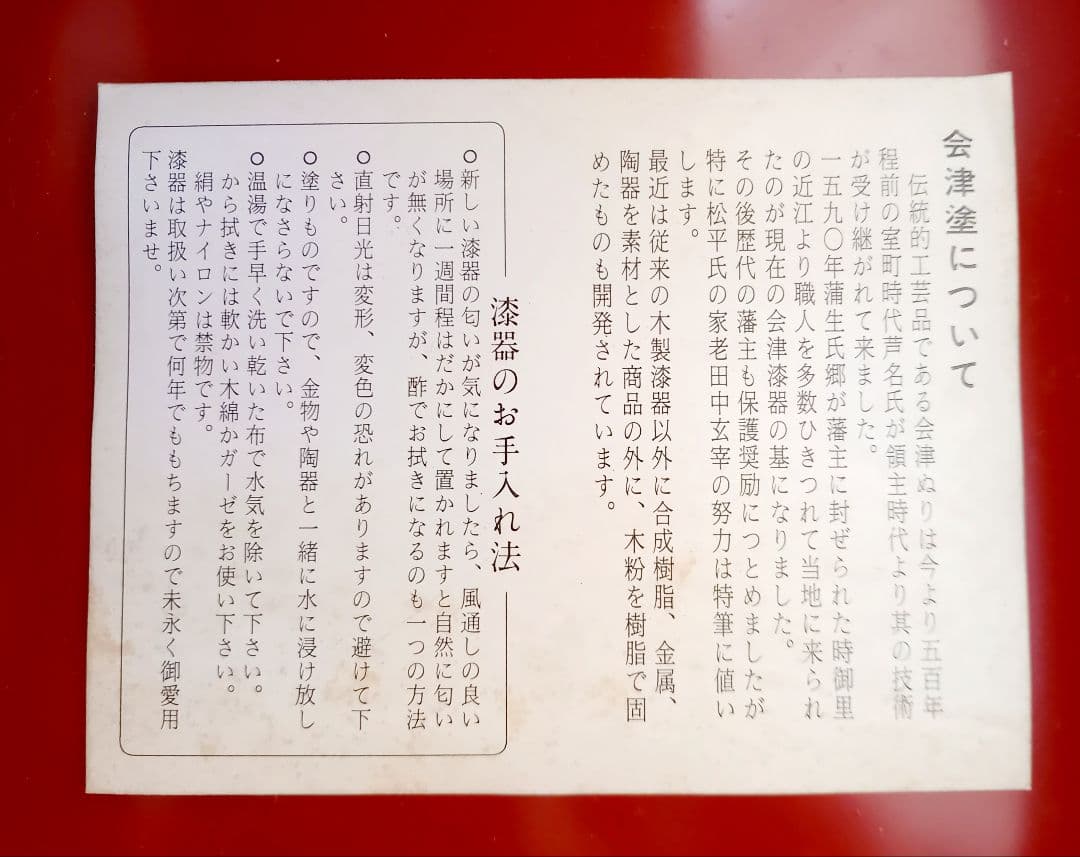 会津塗について
伝統的工芸品である会津ぬりは今より五百年
程前の室町時代芦名氏が領主時代より其の技術
が受け継がれて来ました。
一五九〇年蒲生氏郷が藩主に封ぜられた時御里
の近江より職人を多数ひきつれて当地に来られ
たのが現在の会津漆器の基になりました。
その後歴代の藩主も保護奨励につとめましたが
特に松平氏の家老田中玄宰の努力は特筆に値い
します。
最近は従来の木製漆器以外に合成樹脂、金属、
陶器を素材とした商品の外に、木粉を樹脂で固
めたものも開発されています。
漆器のお手入れ法
○新しい漆器の匂いが気になりましたら、風通しの良い
場所に一週間程はだかにして置かれますと自然に匂い
が無くなりますが、酢でお拭きになるのも一つの方法
です。
○直射日光は変形、変色の恐れがありますので避けて下
さい。
○塗りものですので、金物や陶器と一緒に水に浸け放し
になさらないで下さい。
○温湯で手早く洗い乾いた布で水気を除いて下さい。
から拭きには軟かい木綿かガーゼをお使い下さい。
絹やナイロンは禁物です。
漆器は取扱い次第で何年でももちますので末永く御愛用
下さいませ。